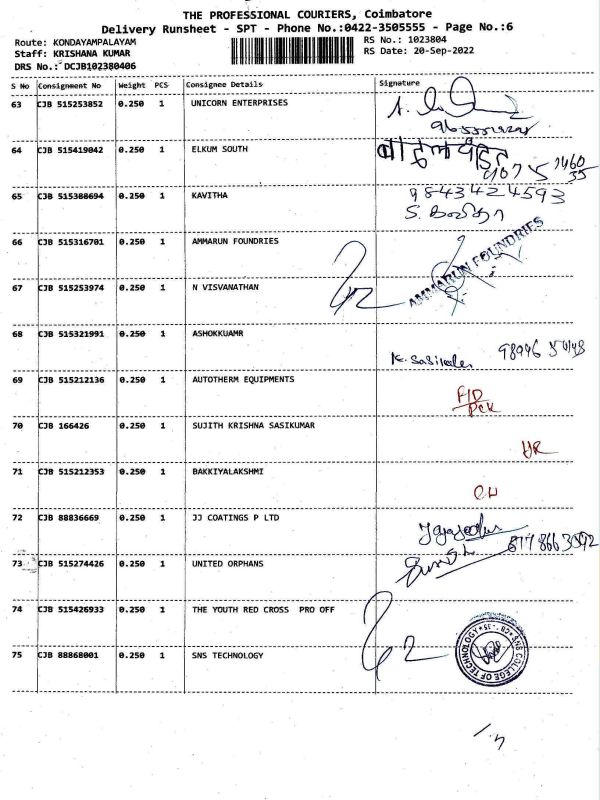 THE PROFESSIONAL COURIERS, Coimbatore
Delivery Runsheet - SPT - Phone No.:0422-3505555 - Page No.:6
Route: KONDAYAMPALAYAM
Staff: KRISHANA KUMAR
DRS No.: DCJB102380406
RS No.: 1023804
RS Date: 20-Sep-2022
S No Consignment No Weight PCS Consignee Details Signature
63 CJB 515253852 0.250 1 UNICORN ENTERPRISES
64 CJB 515419042 0.250 1 ELKUM SOUTH
65 CJB 515388694 0.250 1 KAVITHA 9843424593
S. கவிதா
66 CJB 515316701 0.250 1 AMMARUN FOUNDRIES AMMARUN FOUNDRIES
67 CJB 515253974 0.250 1 N VISVANATHAN
68 CJB 515321991 0.250 1 ASHOKKUAMR
69 CJB 515212136 0.250 1 AUTOTHERM EQUIPMENTS
70 CJB 166426 0.250 1 SUJITH KRISHNA SASIKUMAR
71 CJB 515212353 0.250 1 BAKKIYALAKSHMI
72 CJB 88836669 0.250 1 JJ COATINGS P LTD
73 CJB 515274426 0.250 1 UNITED ORPHANS
74 CJB 515426933 0.250 1 THE YOUTH RED CROSS PRO OFF
75 CJB 88868001 0.250 1 SNS TECHNOLOGY SNS COLLEGE OF TECHNOLOGY